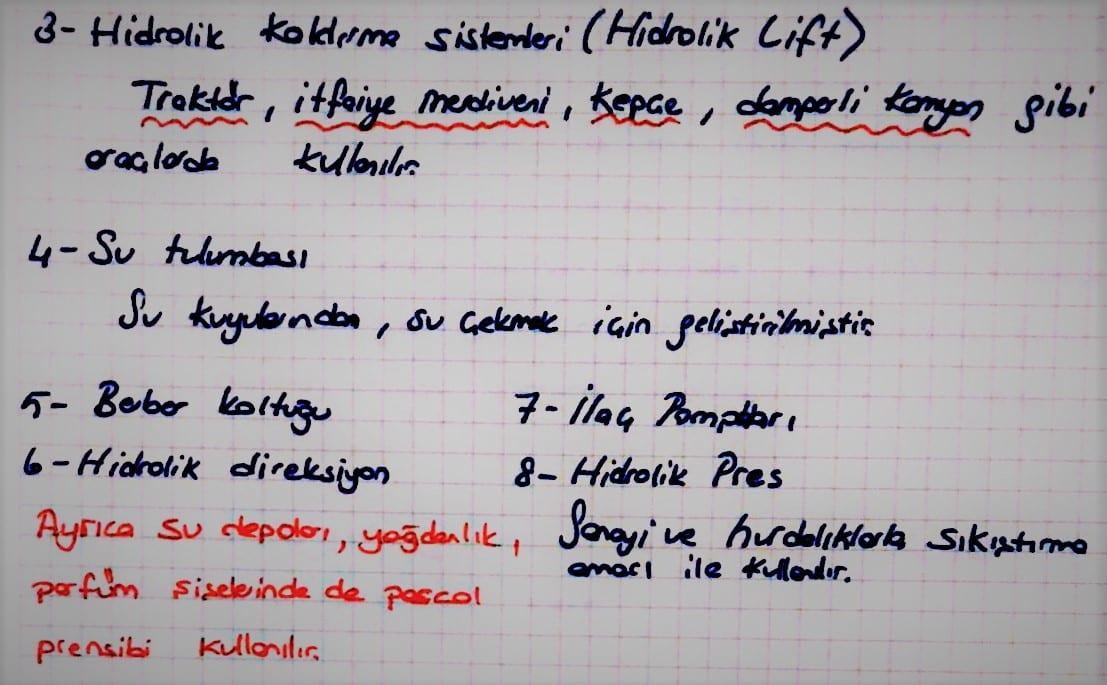 3- Hidrolik kaldırma sistemleri (Hidrolik Lift)
Traktör, itfaiye merdiveni, kepçe, damperli kamyon gibi
araçlarda kullanılır.
4- Su tulumbası
Su kuyularından, su çekmek için geliştirilmiştir.
5- Berber koltuğu
6- Hidrolik direksiyon
Ayrıca su depoları, yağdanlık,
parfüm şişelerinde de pascal
prensibi kullanılır.
7- İlaç Pompaları
8- Hidrolik Pres
Sanayi ve hurdalıklarda sıkıştırma
amacı ile kullanılır.